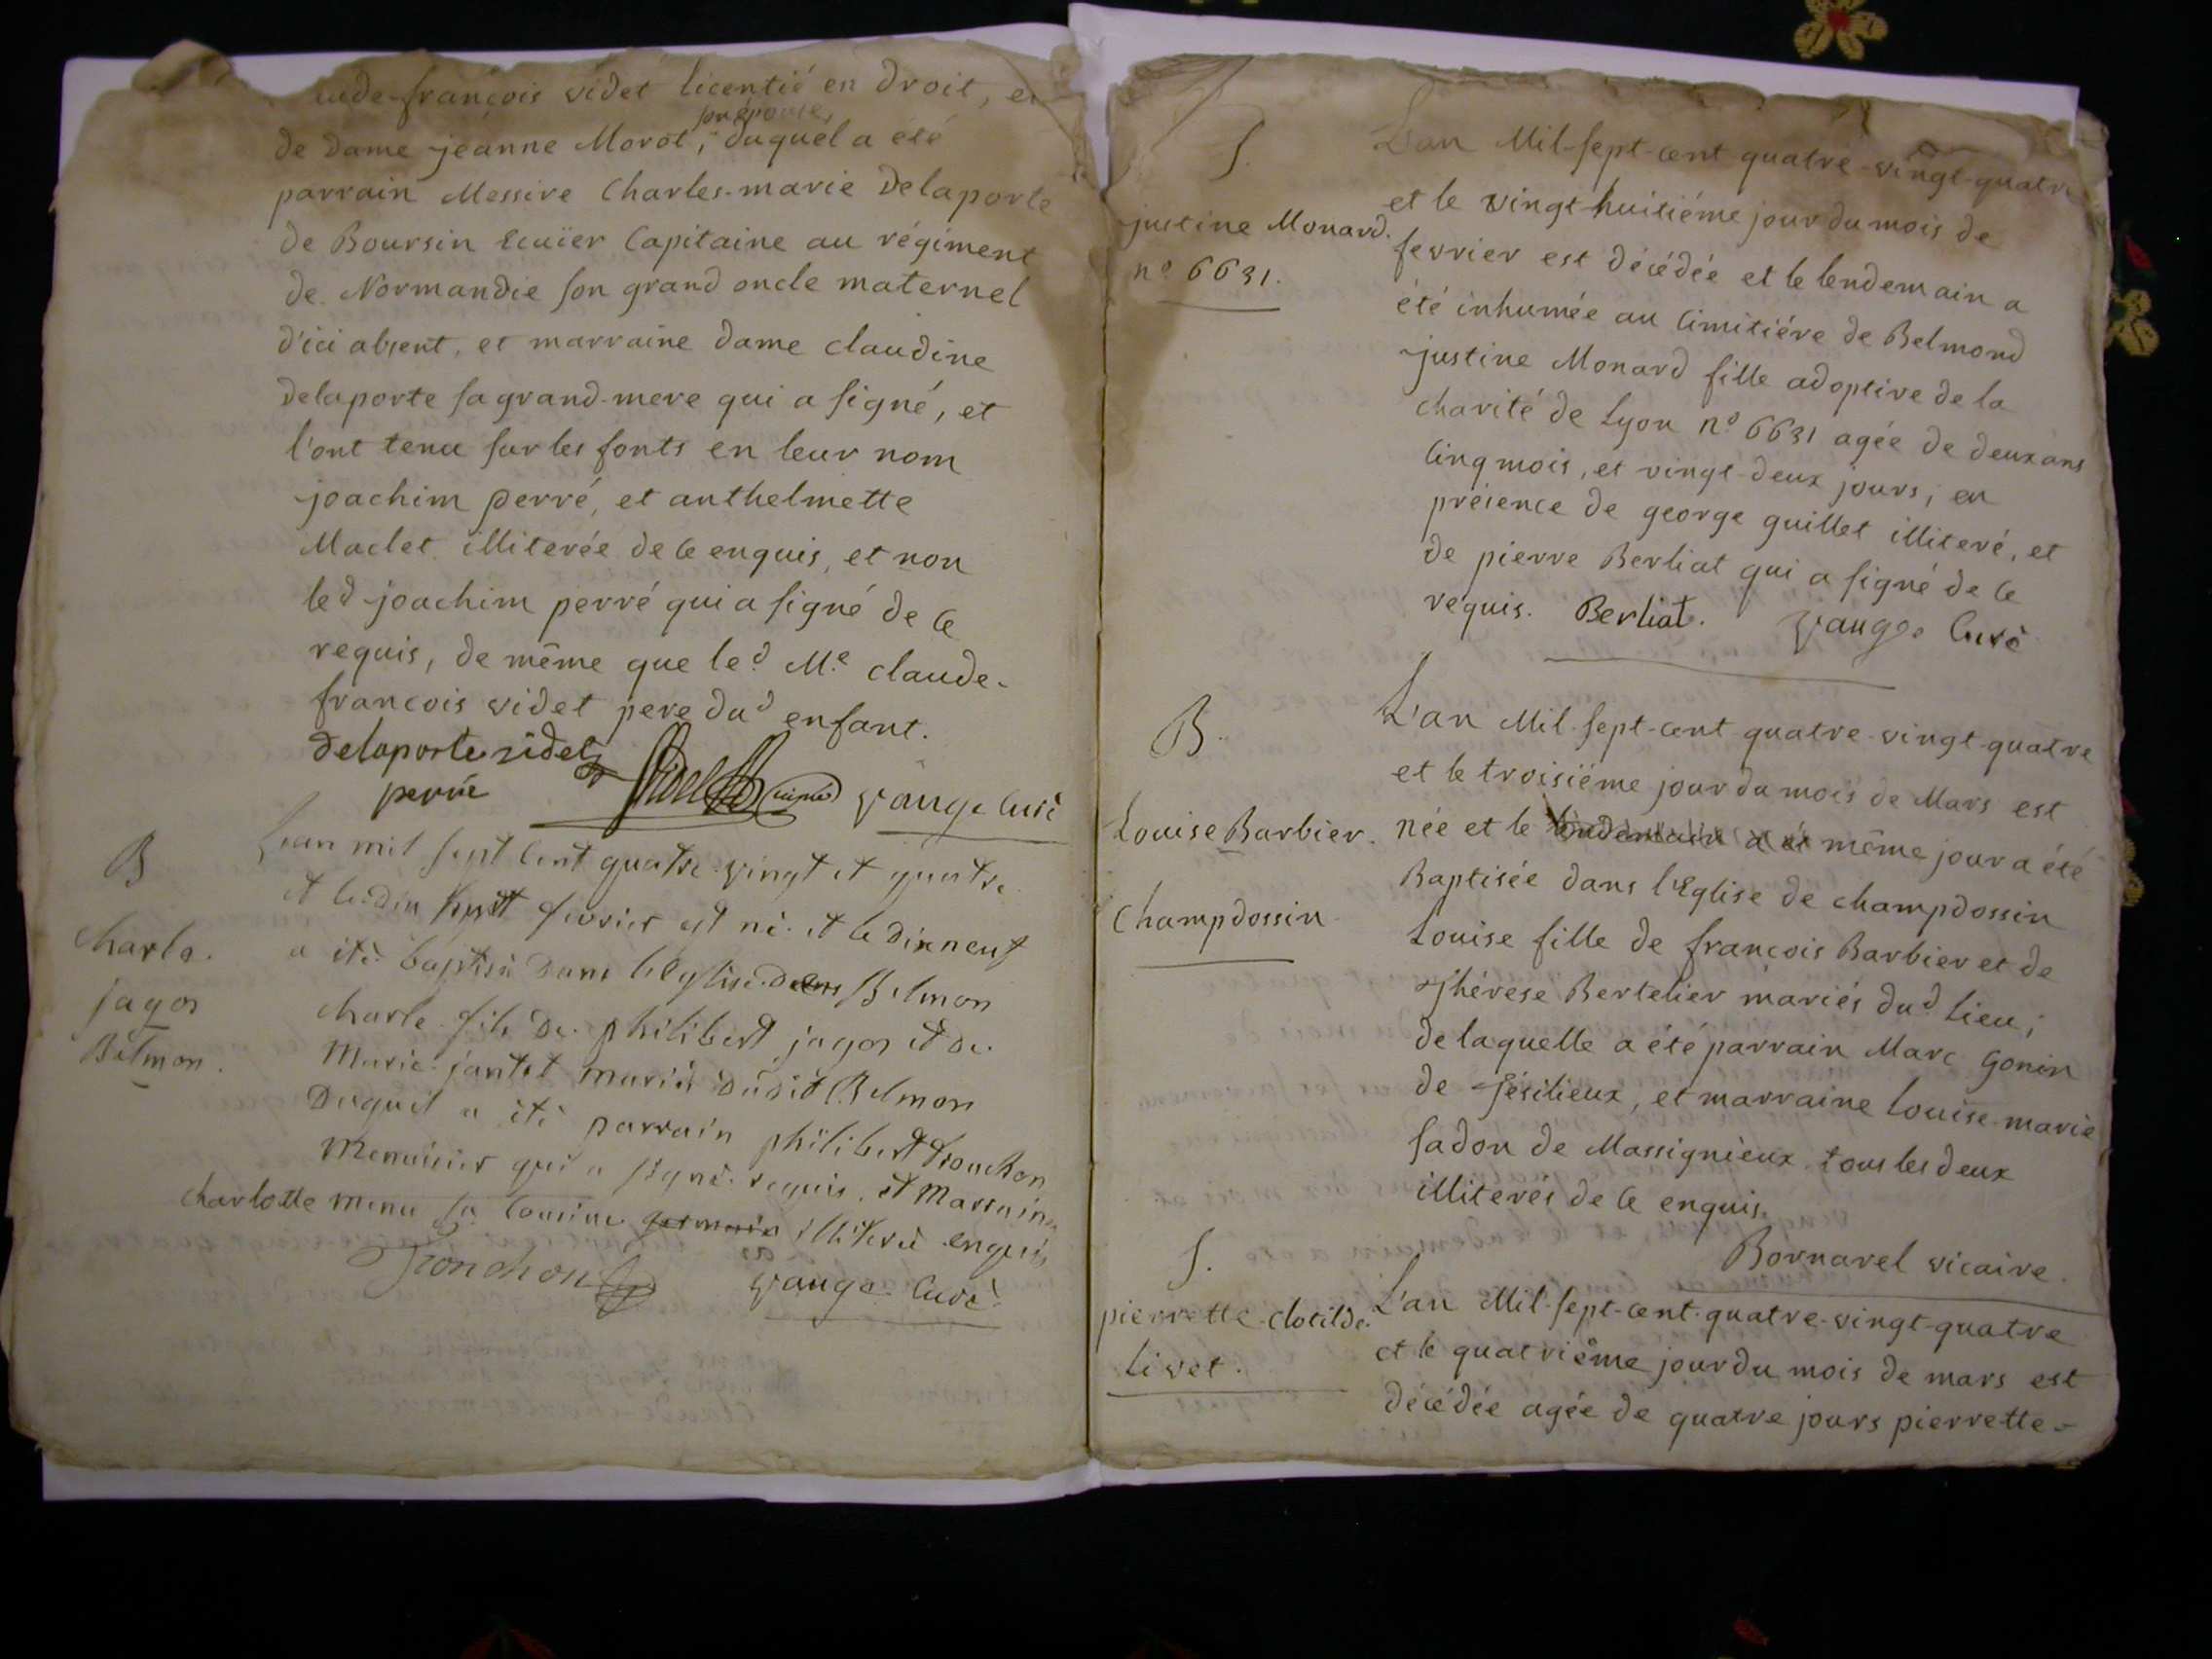 françois videt licentié en droit, et
son épouse,
de dame jeanne Morot, duquel a été
parrain Messire Charles-marie Delaporte
de Boursin Ecuïer Capitaine au régiment
de Normandie son grand oncle maternel
d'ici absent, et marraine dame claudine
delaporte sa grand-mere qui a signé, et
l'ont tenu sur les fonts en leur nom
joachim perré, et anthelmette
Maclet illiterée de ce enquis, et non
led joachim perré qui a signé de ce
requis, de même que led. Me. claude-
françois videt pere dud enfant.
delaporte videt
perré vauge Curé
B
Charle.
jagos
Belmon.
Lan mil sept cent quatre vingt et quatre
et le dix sept fevrier est né et le dix neuf
a été baptisé dans l'eglise de Belmon
charle fils de philibert jagos et de
Marie jantet mariés dudit Belmon
Duquel a été parrain philibert tronchon
Menuisier qui a signé requis et Marraine
charlotte menu sa cousine illiterée enquis
Tronchon vauge Curé
S.
justine Monard.
no 6631.
L'an Mil-sept-cent quatre-vingt-quatre
et le vingt-huitiéme jour du mois de
fevrier est décédée et le lendemain a
été inhumée au Cimitiére de Belmond
justine Monard fille adoptive de la
charité de Lyon no 6631 agée de deux ans
Cinq mois, et vingt-deux jours, en
présence de george guillet illiteré, et
de pierre Berliat qui a signé de ce
requis. Berliat. vauge Curé
B.
Louise Barbier.
Champdossin
L'an Mil-sept-cent quatre-vingt-quatre
et le troisiême jour du mois de Mars est
née et le lendemain a été même jour a été
Baptisée dans l'Eglise de champdossin
Louise fille de françois Barbier et de
Thérese Bertelier mariés dud. Lieu;
de laquelle a été parrain Marc Gonin
de Jésilieux, et marraine Louise-marie
sadon de Massignieux tous les deux
illiterés de ce enquis.
Bornarel vicaire.
S.
pierrette-Clotilde.
Livet.
L'an Mil-sept-cent-quatre-vingt-quatre
et le quatriême jour du mois de mars est
décédée agée de quatre jours pierrette-